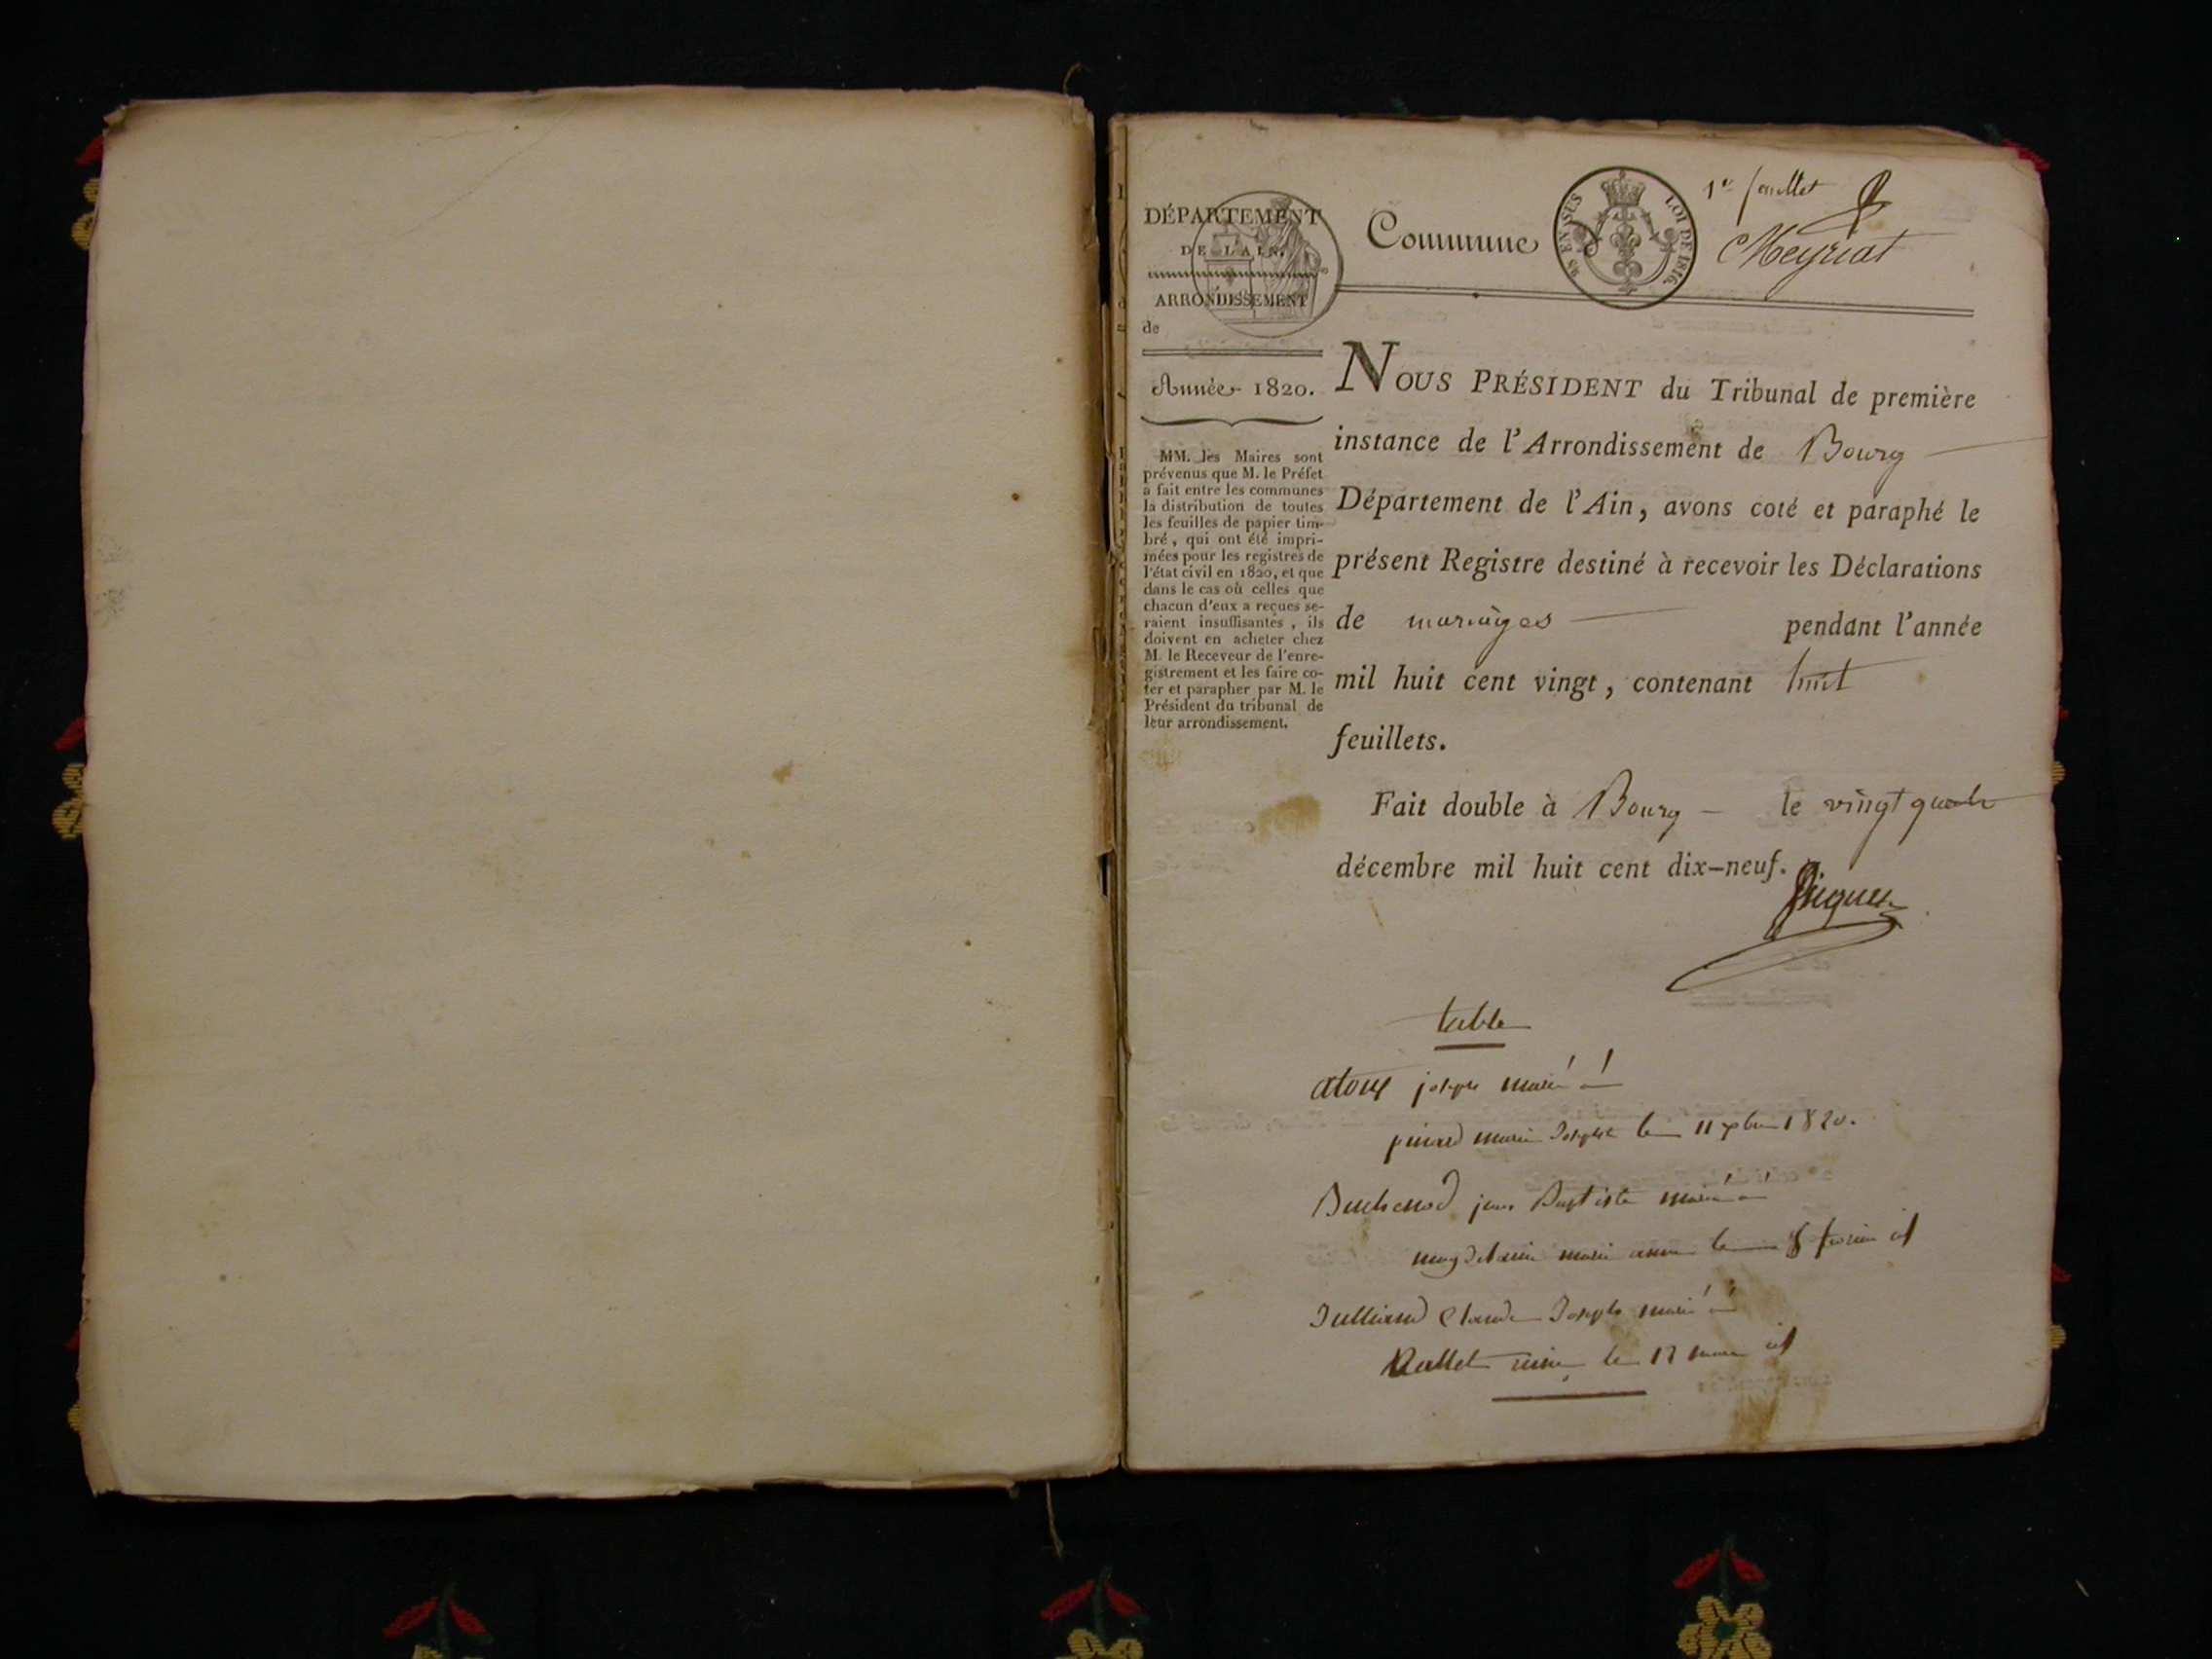 1er feuillet
DÉPARTEMENT
DE L'AIN.
ARRONDISSEMENT
de
Commune
EN SUS
LOI DE 1816.
Meyriat
Année 1820.
MM. les Maires sont
prévenus que M. le Préfet
a fait entre les communes
la distribution de toutes
les feuilles de papier tim-
bré, qui ont été impri-
mées pour les registres de
l'état civil en 1820, et que
dans le cas où celles que
chacun d'eux a reçues se-
raient insuffisantes, ils
doivent en acheter chez
M. le Receveur de l'enre-
gistrement et les faire co-
ter et parapher par M. le
Président du tribunal de
leur arrondissement.
NOUS PRÉSIDENT du Tribunal de première
instance de l'Arrondissement de Bourg
Département de l'Ain, avons coté et paraphé le
présent Registre destiné à recevoir les Déclarations
de mariages pendant l'année
mil huit cent vingt, contenant huit
feuillets.
Fait double à Bourg – le vingt quatre
décembre mil huit cent dix-neuf.
table
joseph marié à
marie Josephe le 11 xbre 1820.
jean Baptiste marié à
marie anne le 8 février id
Julliard Claude Joseph marié à
le mars id